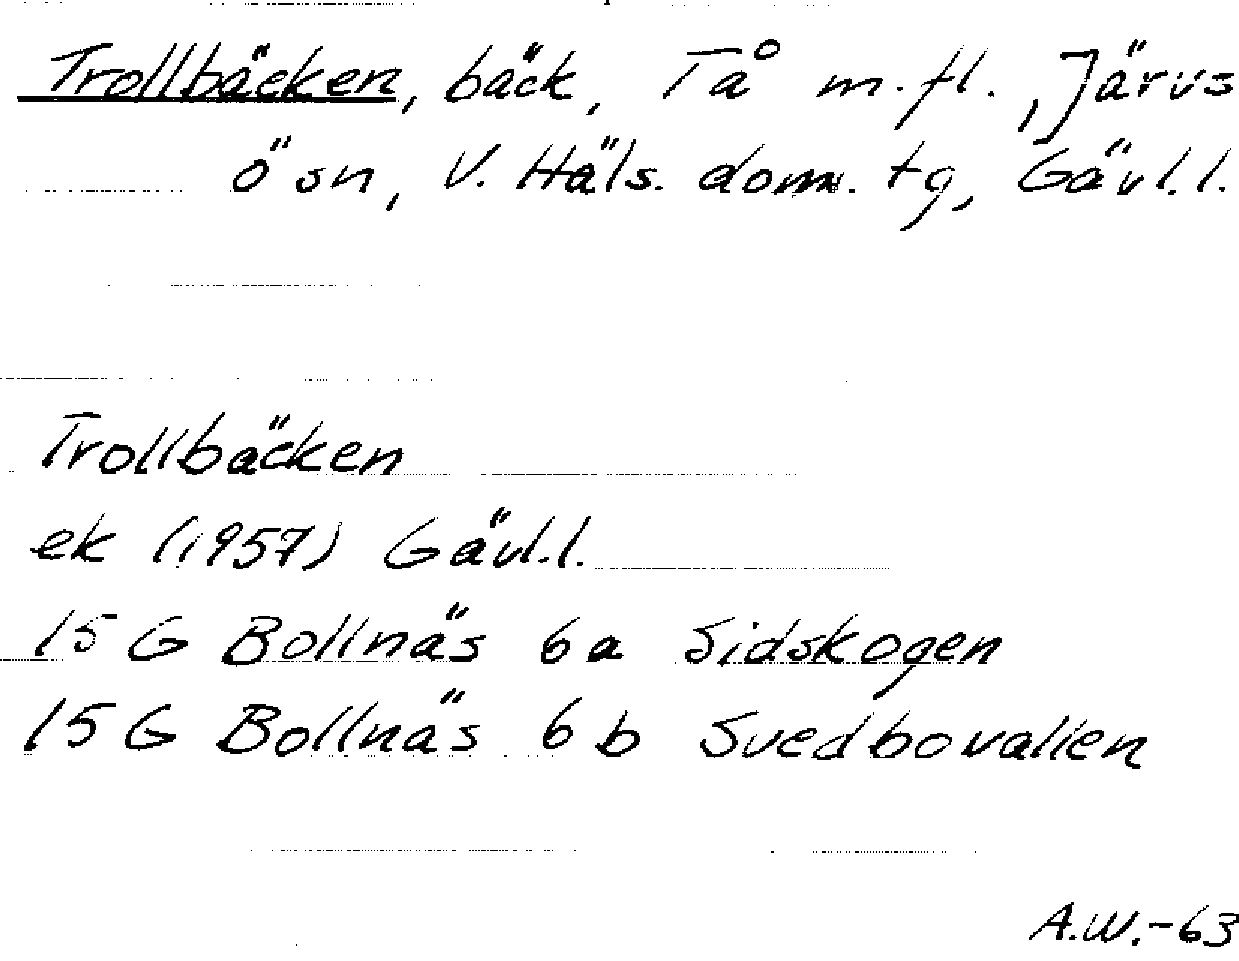 Trollbäcken, bäck, Tå m.fl., Järvs
ö sn, V. Häls. doms. tg, Gävl.l.
Trollbäcken
ek (1957) Gävl.l.
15 G Bollnäs 6 a Sidskogen
15 G Bollnäs 6 b Svedbovallen
A.W.-63